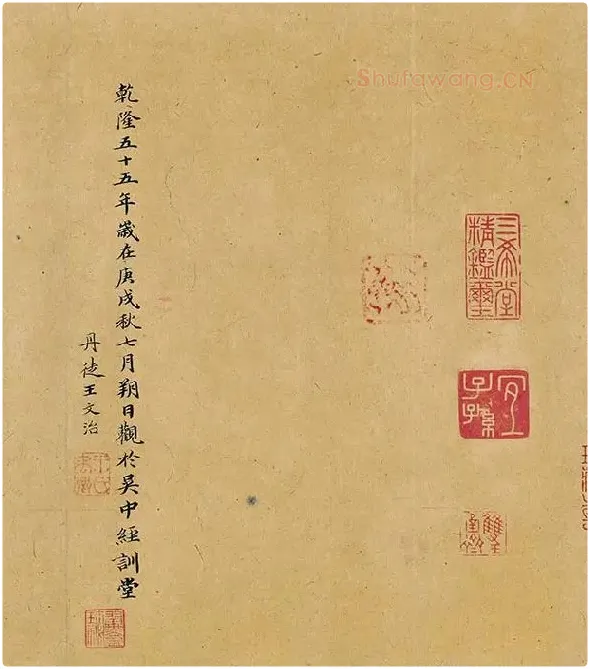 Shufawang.CN
三希堂精鑑璽
宜子孫
乾隆五十五年歲在庚戌秋七月朔日觀於吳中經訓堂
丹徒王文治